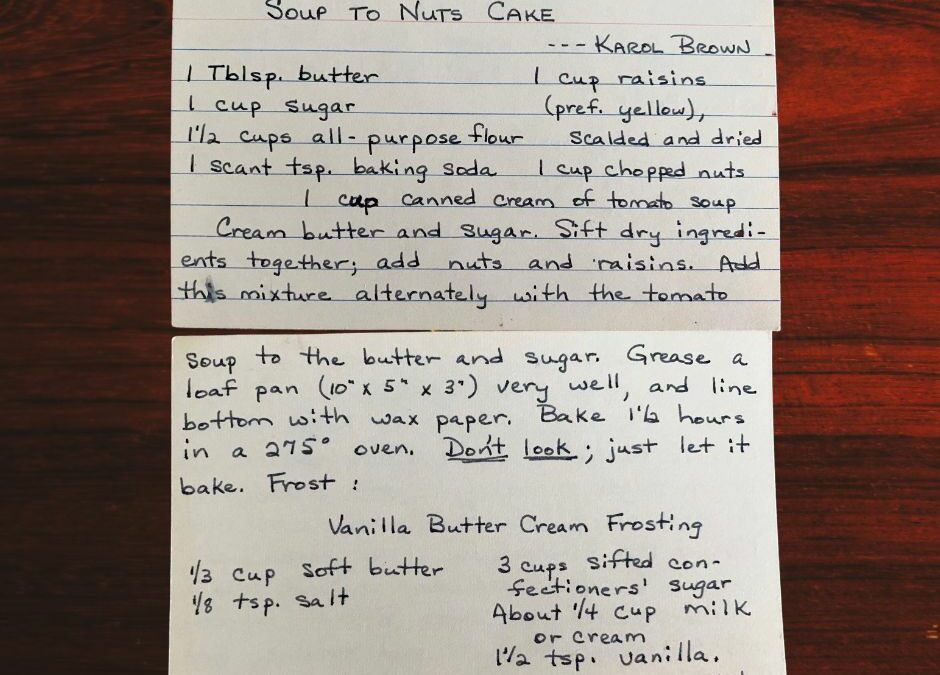 SOUP TO NUTS CAKE
--- KAROL BROWN
1 Tblsp. butter
1 cup sugar
1 1/2 cups all-purpose flour
1 scant tsp. baking soda
1 cup raisins
(pref. yellow),
scalded and dried
1 cup chopped nuts
1 cup canned cream of tomato soup
Cream butter and sugar. Sift dry ingredi-
ents together; add nuts and raisins. Add
this mixture alternately with the tomato
soup to the butter and sugar. Grease a
loaf pan (10" x 5" x 3") very well, and line
bottom with wax paper. Bake 1 1/2 hours
in a 275° oven. Don't look; just let it
bake. Frost:
Vanilla Butter Cream Frosting
1/3 cup soft butter
1/8 tsp. salt
3 cups sifted con-
fectioners' sugar
About 1/4 cup milk
or cream
1 1/2 tsp. vanilla.